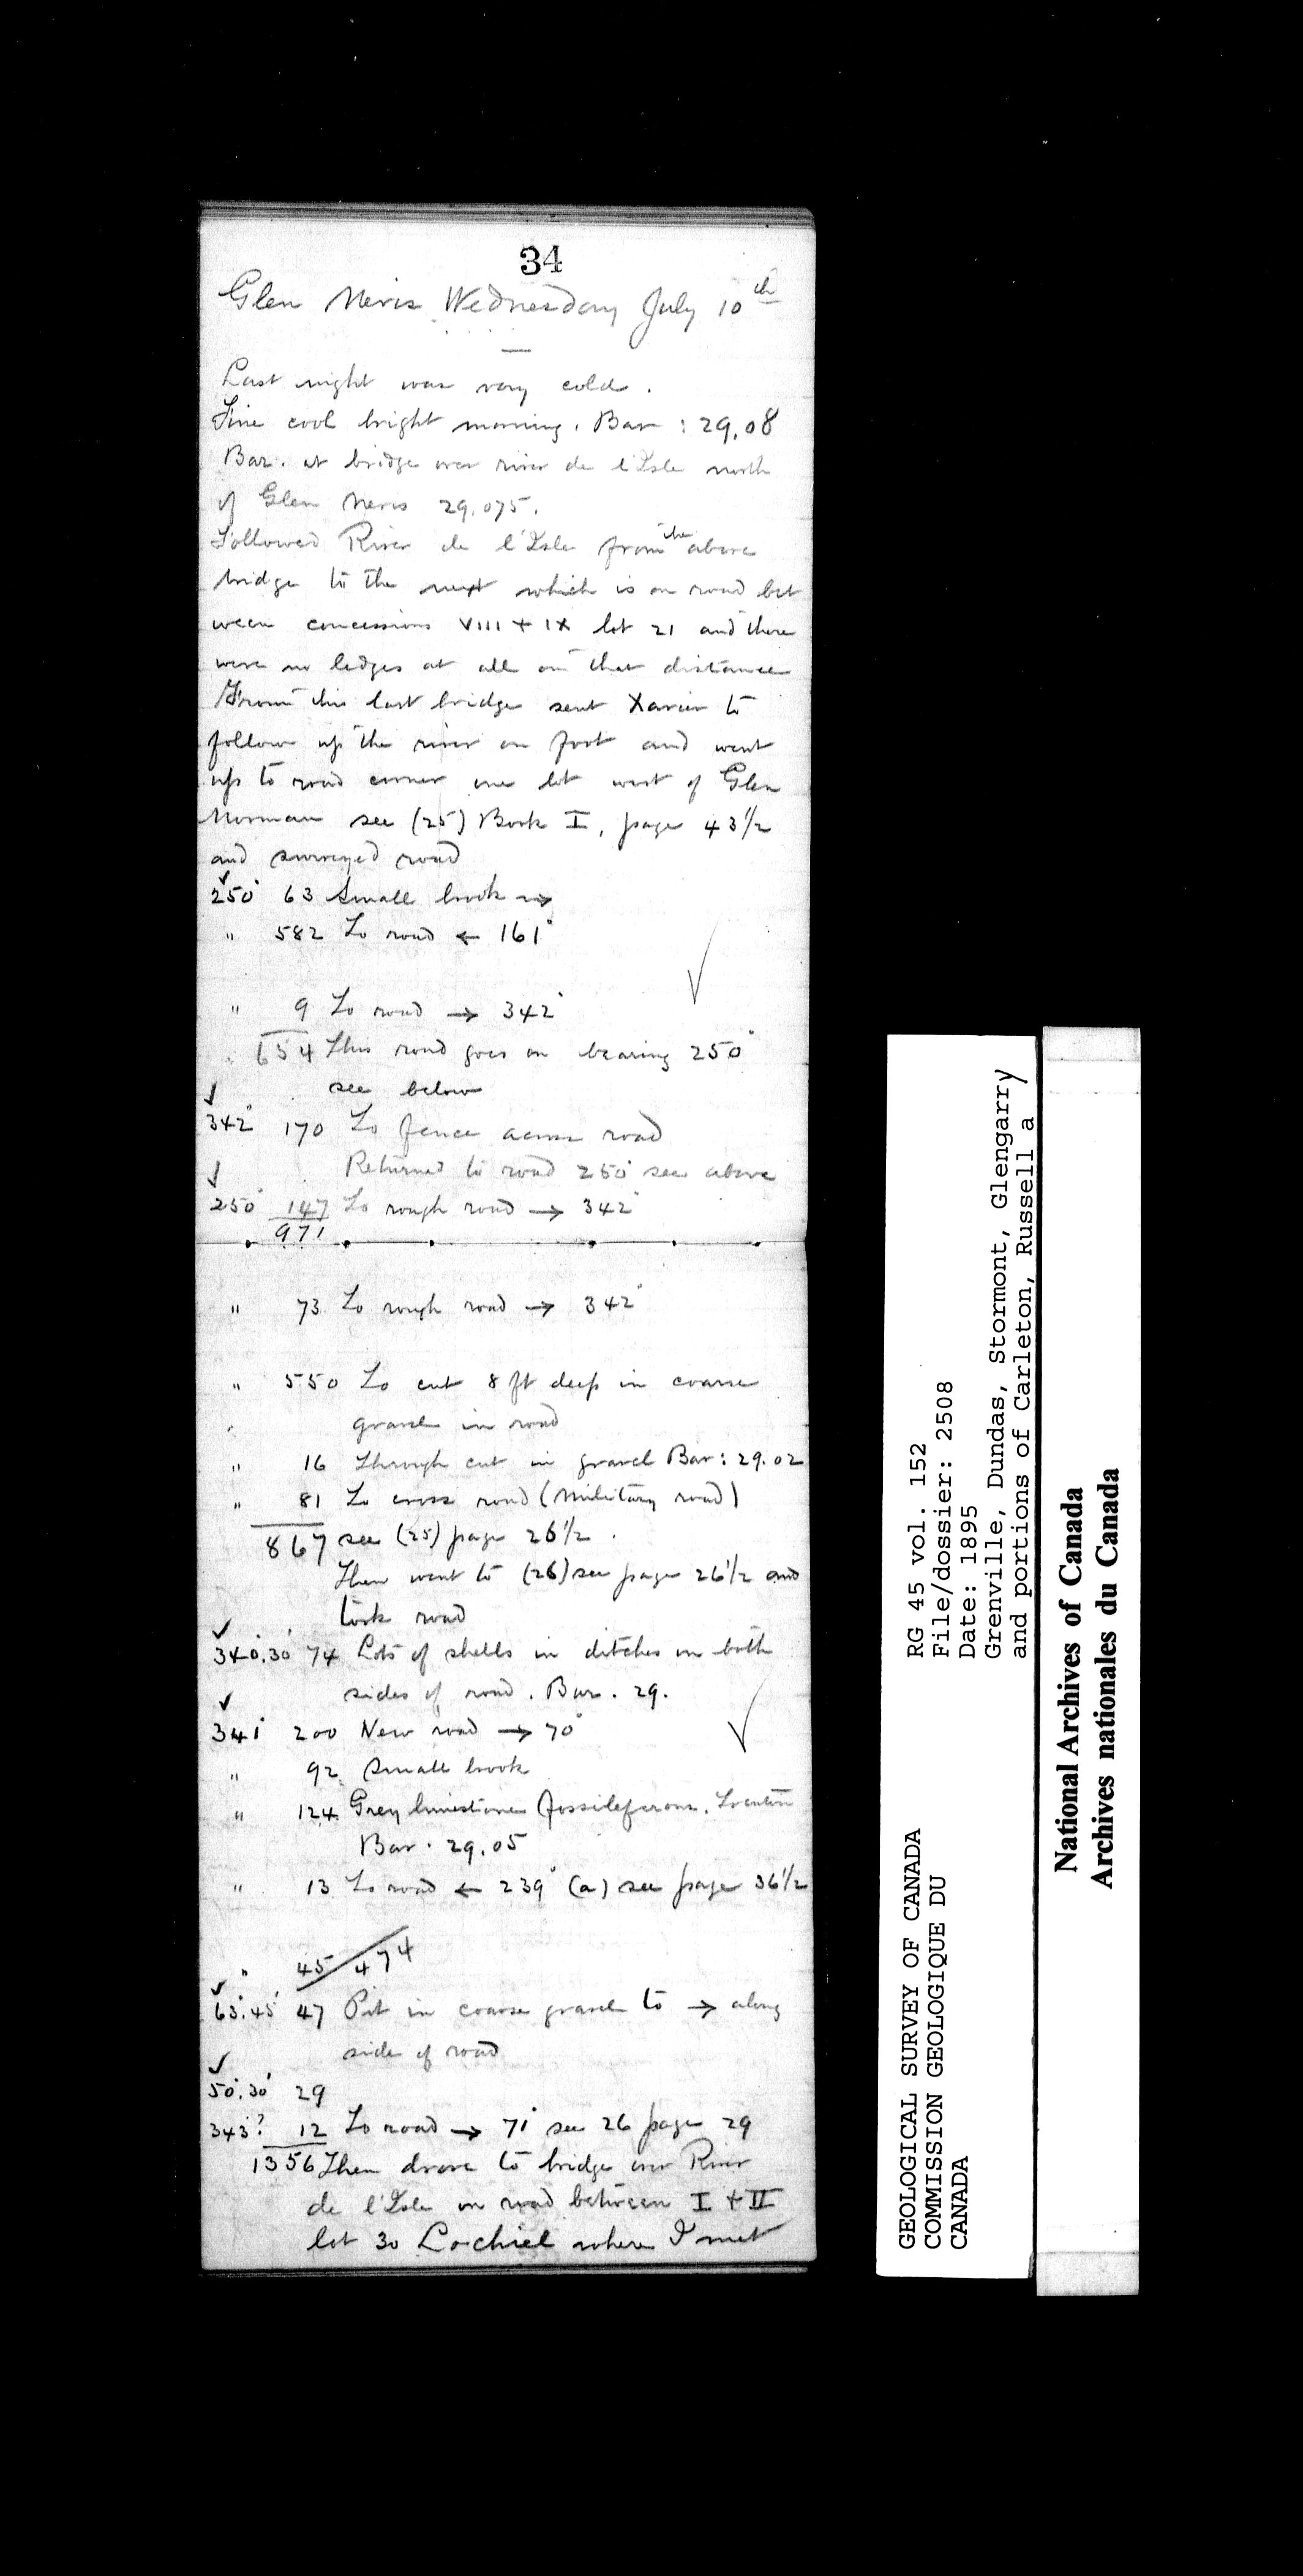 34
Glen Nevis Wednesday July 10th
Last night was very cold.
Fine cool bright morning. Bar : 29.08
Bar. at bridge over river de l'Isle north
of Glen Nevis 29.075.
Followed River de l'Isle from the above
bridge to the next which is on road bet
ween concessions VIII + IX lot 21 and there
were no ledges at all on that distance
From this last bridge sent Xavier to
follow up the river on foot and went
up to road corner one lot west of Glen
Norman see (25) Book I, page 43 1/2
and surveyed road
✓
250° 63 Small brook →
" 582 To road ← 161°
✓
" 9 To road → 342°
" 654 This road goes on bearing 250°
see below
✓
342° 170 To fence across road
Returned to road 250° see above
✓
250° 147 To rough road → 342°
971
" 73 To rough road → 342°
" 550 To cut 8 ft deep in coarse
gravel in road
" 16 Through cut in gravel Bar: 29.02
" 81 To cross road (Military road)
867 see (25) page 26 1/2.
Then went to (26) see page 26 1/2 and
took road
✓
340°.30' 74 Lots of shells in ditches on both
sides of road. Bar. 29.
✓
341° 200 New road → 70°
✓
" 92 Small brook
" 124 Grey limestone fossiliferous.
Bar. 29.05
" 13 To road ← 239° (a) see page 36 1/2
" 45 / 474
✓
63°.45' 47 Pit in coarse gravel to → along
side of road
✓
50°.30' 29
343°? 12 To road → 71° see 26 page 29
1356 Then drove to bridge over River
de l'Isle on road between I + II
lot 30 Lochiel where I met
GEOLOGICAL SURVEY OF CANADA
COMMISSION GEOLOGIQUE DU
CANADA
RG 45 vol. 152
File/dossier: 2508
Date: 1895
Grenville, Dundas, Stormont, Glengarry
and portions of Carleton, Russell a
National Archives of Canada
Archives nationales du Canada